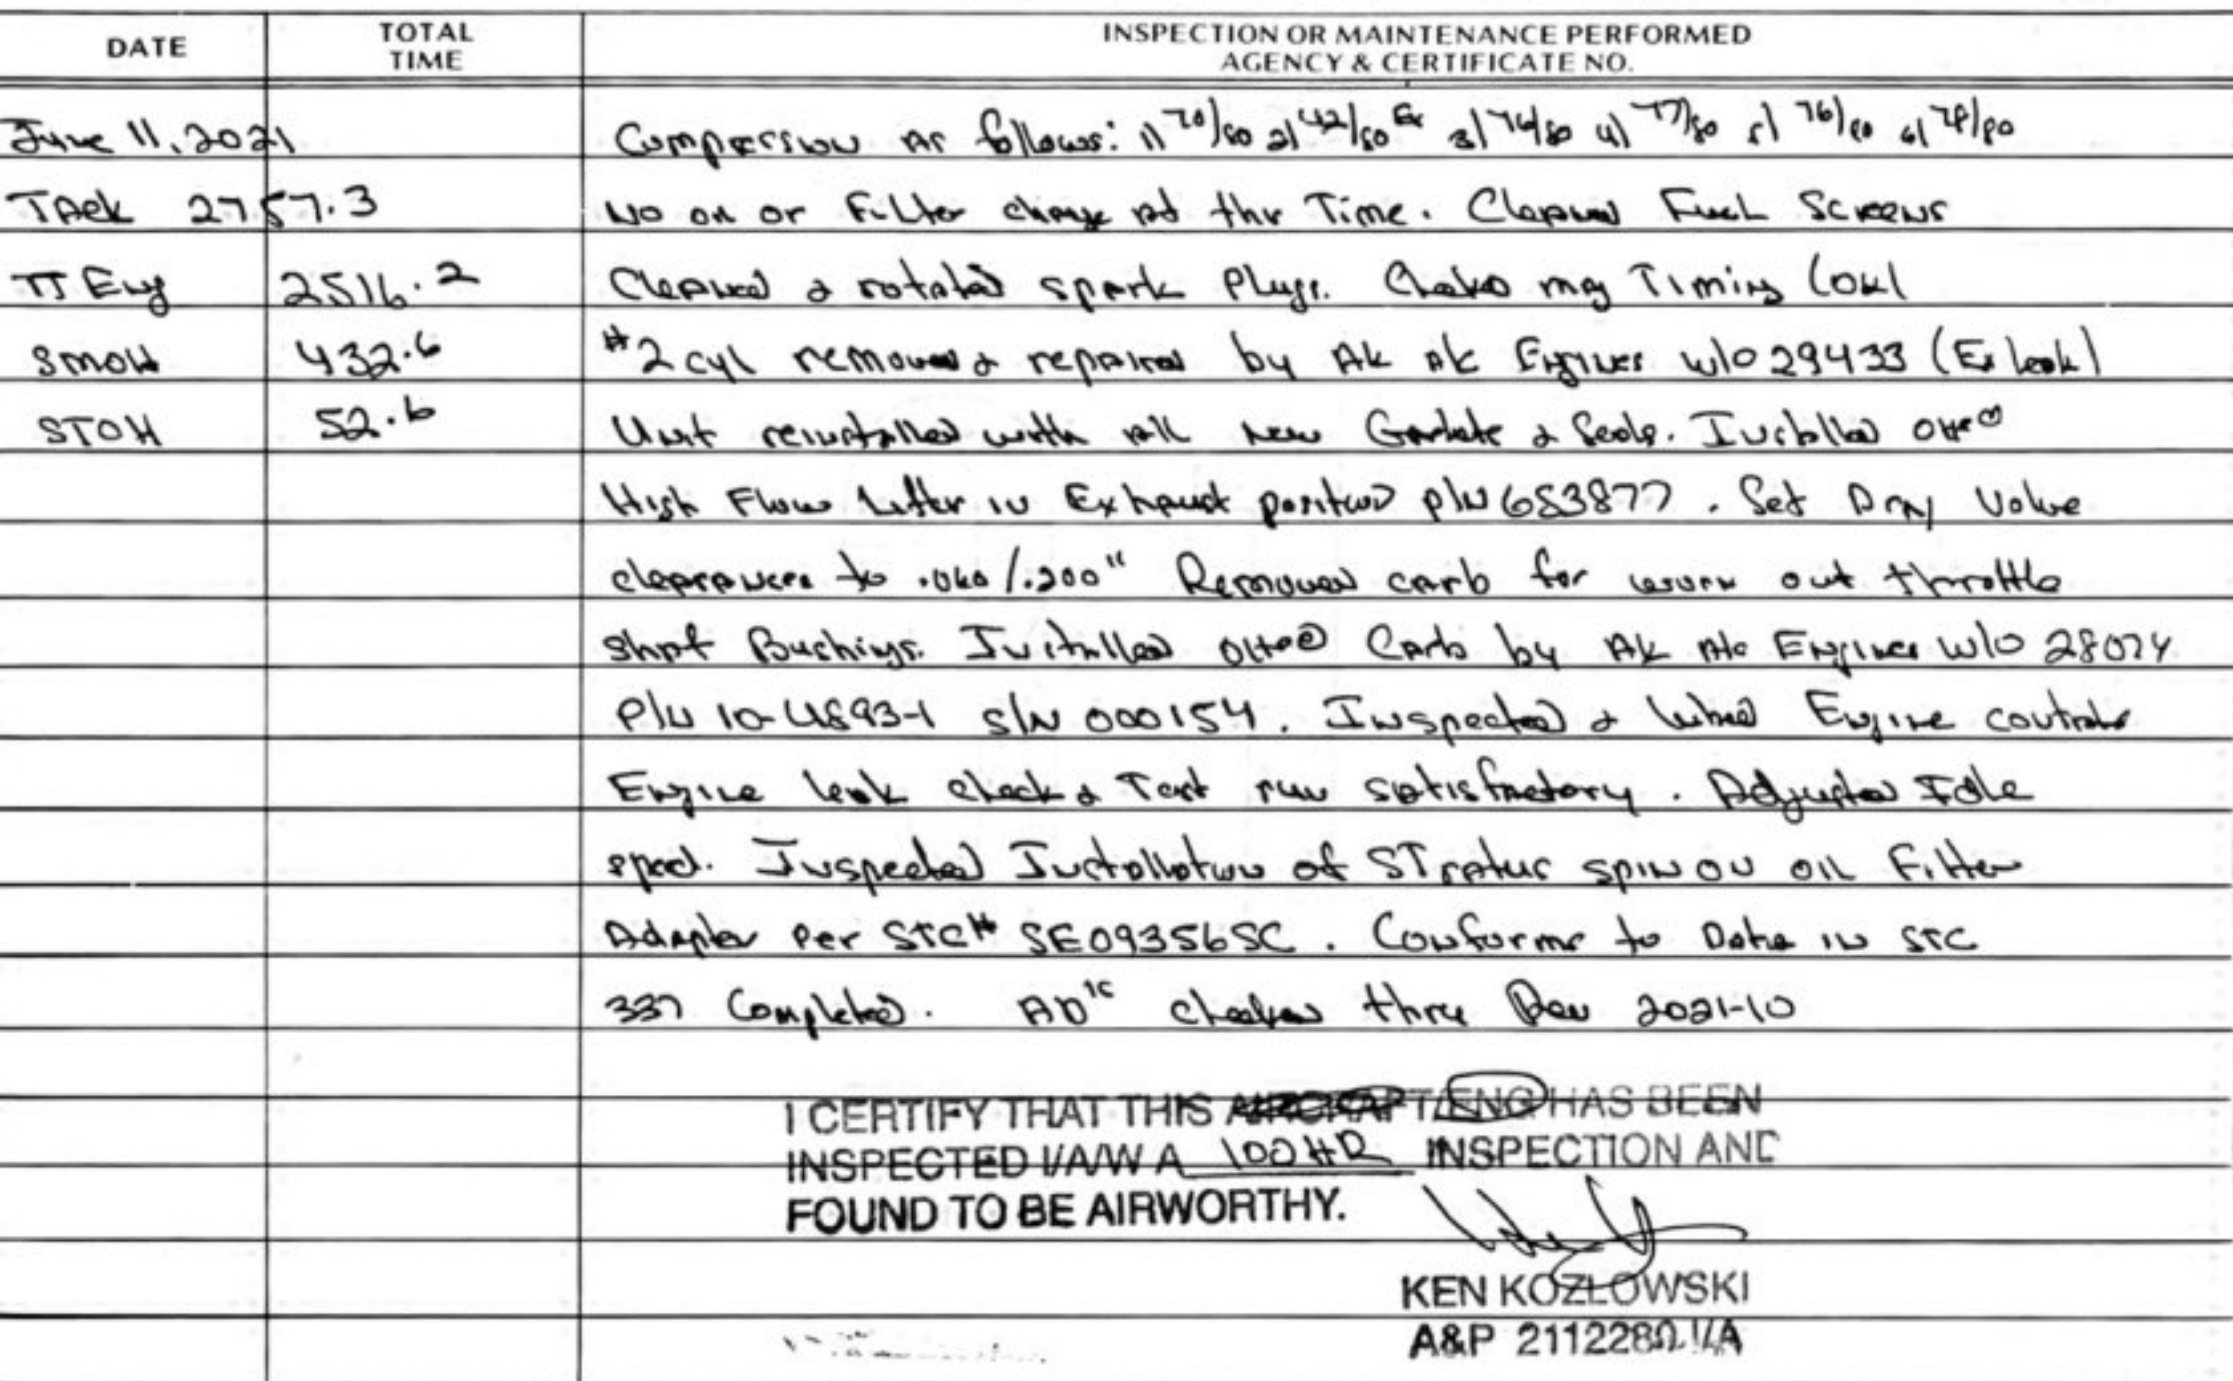 DATE TOTAL TIME INSPECTION OR MAINTENANCE PERFORMED
AGENCY & CERTIFICATE NO.
June 11, 2021 Compression as follows: 1) 70/80 2) 42/80 Ex 3) 74/80 4) 77/80 5) 76/80 6) 78/80
TAck 2757.3 No oil or Filter change at this Time. Cleaned Fuel Screens
TT Eng 2516.2 Cleaned & rotated spark Plugs. Checked mag Timing (OK)
SMOH 432.6 #2 cyl removed & repaired by Ak Engines w/o 29433 (Ex leak)
STOH 52.6 Unit reinstalled with all new Gaskets & Seals. Installed
High Flow Lifter in Exhaust position p/n 653877. Set Dry Valve
clearances to .060/.200" Removed carb for worn out throttle
shaft Bushings. Installed Carb by Ak Engines W/O 28074
P/N 10-4893-1 s/n 000154. Inspected & lubed Engine controls
Engine leak check & Test run satisfactory. Adjusted Idle
speed. Inspected Installation of STratus spin on oil Filter
Adapter Per STC# SE09356SC. Conforms to Data in STC
337 Completed. AD's checked thru Rev 2021-10
I CERTIFY THAT THIS AIRCRAFT/ENG HAS BEEN
INSPECTED I/A/W A 100 HR INSPECTION AND
FOUND TO BE AIRWORTHY.
KEN KOZLOWSKI
A&P 2112280 I/A